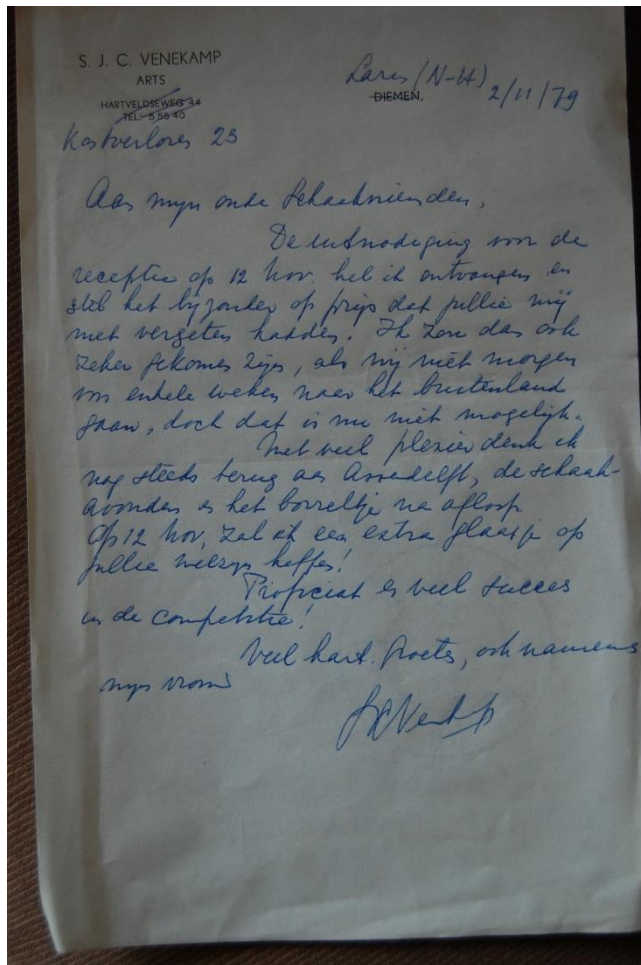 S. J. C. VENEKAMP
ARTS
HARTVELDSEWEG 44
TEL. 5 55 40
Kostverloren 25
Laren (N-H)
DIEMEN, 2/11/79
Aan mijn oude Schaakvrienden,
De uitnodiging voor de
receptie op 12 Nov. heb ik ontvangen en
stel het bijzonder op prijs dat jullie mij
niet vergeten hadden. Ik zou dan ook
zeker gekomen zijn, als wij niet morgen
voor enkele weken naar het buitenland
gaan, doch dat is nu niet mogelijk.
Met veel plezier denk ik
nog steeds terug aan Assendelft, de schaak-
avonden en het borreltje na afloop
Op 12 Nov, zal ik een extra glaasje op
jullie welzijn heffen!
Proficiat en veel succes
in de competitie!
Veel hart. groeten, ook namens
mijn vrouw